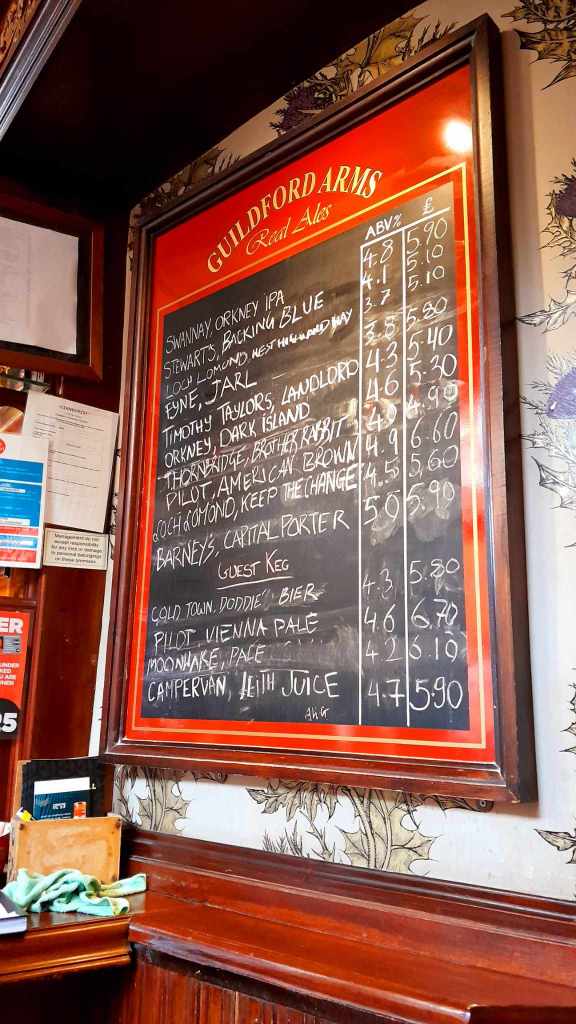 GUILDFORD ARMS
Real Ales
ABV% £
SWANNAY, ORKNEY IPA 4.8 5.90
STEWARTS, BACKING BLUE 4.1 5.10
LOCH LOMOND, WEST HIGHLAND WAY 3.7 5.10
FYNE, JARL 3.8 5.80
TIMOTHY TAYLORS, LANDLORD 4.3 5.40
ORKNEY, DARK ISLAND 4.6 5.30
THORNBRIDGE, BROTHER RABBIT 4.90
PILOT, AMERICAN BROWN 4.9 6.60
LOCH LOMOND, KEEP THE CHANGE 4.5 5.60
BARNEY'S, CAPITAL PORTER 5.0 5.90
GUEST KEG
COLD TOWN, DODDIE' BIER 4.3 5.80
PILOT VIENNA PALE 4.6 6.70
MOONWAKE, PALE 4.2 6.10
CAMPERVAN, LEITH JUICE 4.7 5.90
Management do not
accept any responsibility
for any loss or damage
to personal belongings
on these premises
ER
UNDER